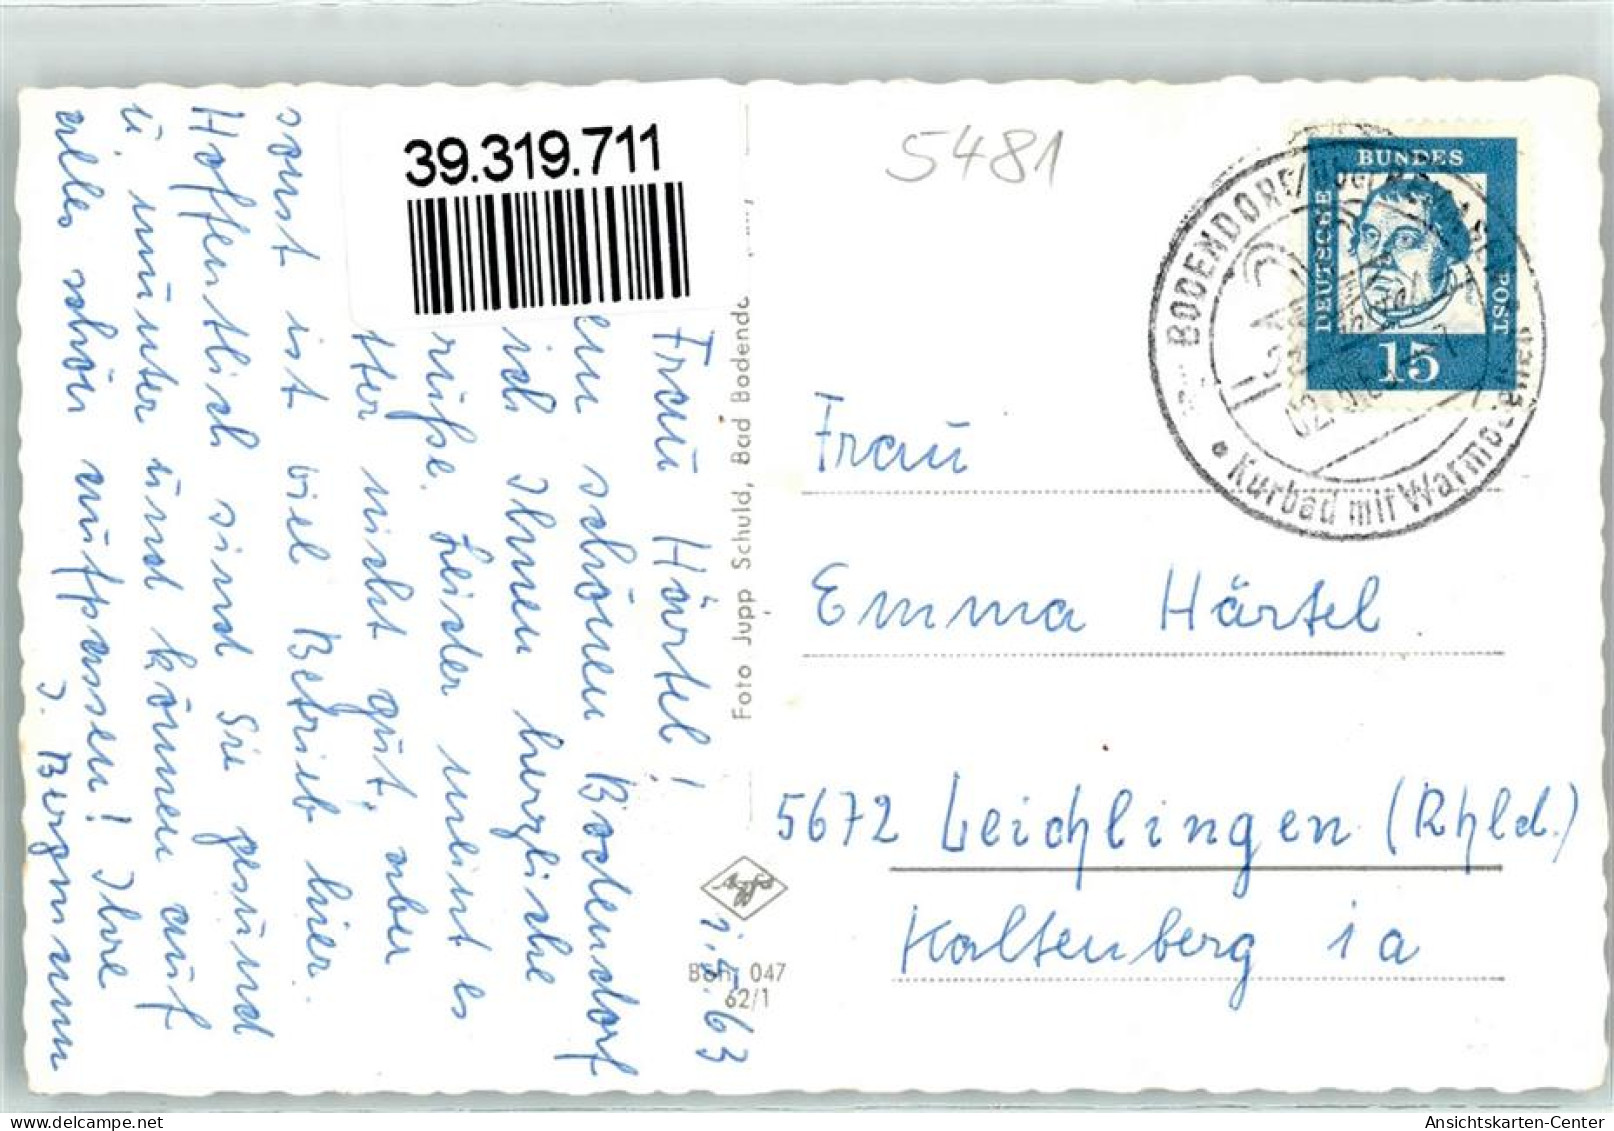 39.319.711
5481
Frau Härtel!
en schönen Bodendorf
ich Ihnen herzliche
rüße. Leider meint es
tter nicht gut, aber
sonst ist viel Betrieb hier.
Hoffentlich sind Sie gesund
u. munter und können auf
alles schön aufpassen! Ihre
J. Bergmann
Foto Jupp Schuld, Bad Bodendo
Bon 047
62/1
63
BUNDES
DEUTSCHE
POST
15
BODENDORF
Kurbad mit Warm
Frau
Emma Härtel
5672 Leichlingen (Rhld.)
Kaltenberg 1a
Ansichtskarten-Center